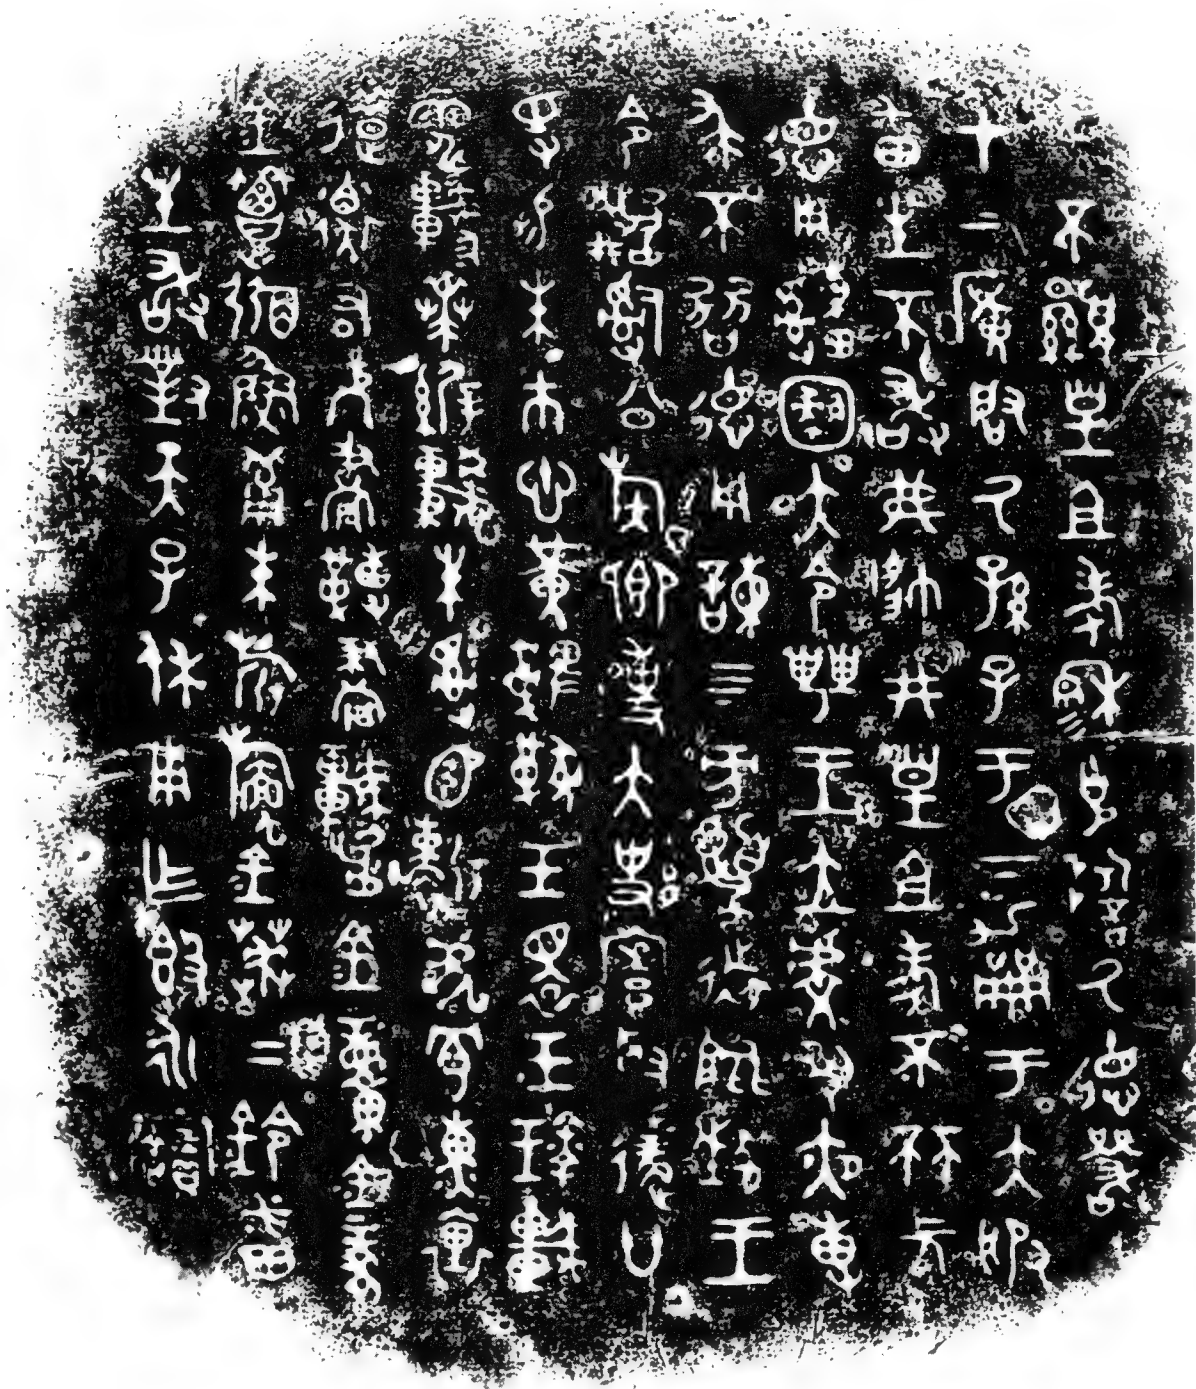 不顯皇且考穆=克誓氒德嚴才
上廣啟氒孫子于下擢于大服
番生不敢弗帥井皇且考不杯元
德用大令屏王立虔夙夜尃
求不朁德用諫四方柔遠能邇王
令公族卿事大史寮取徵廿
寽易朱巿悤黃鞞玉睘玉瑹車
電軫縟較朱靳虎冟熏裏
錯衡右厄畫畫金童金豙
金簟弼魚葡朱旂旜金芫二鈴番
生敢對天子休用乍簋永寶